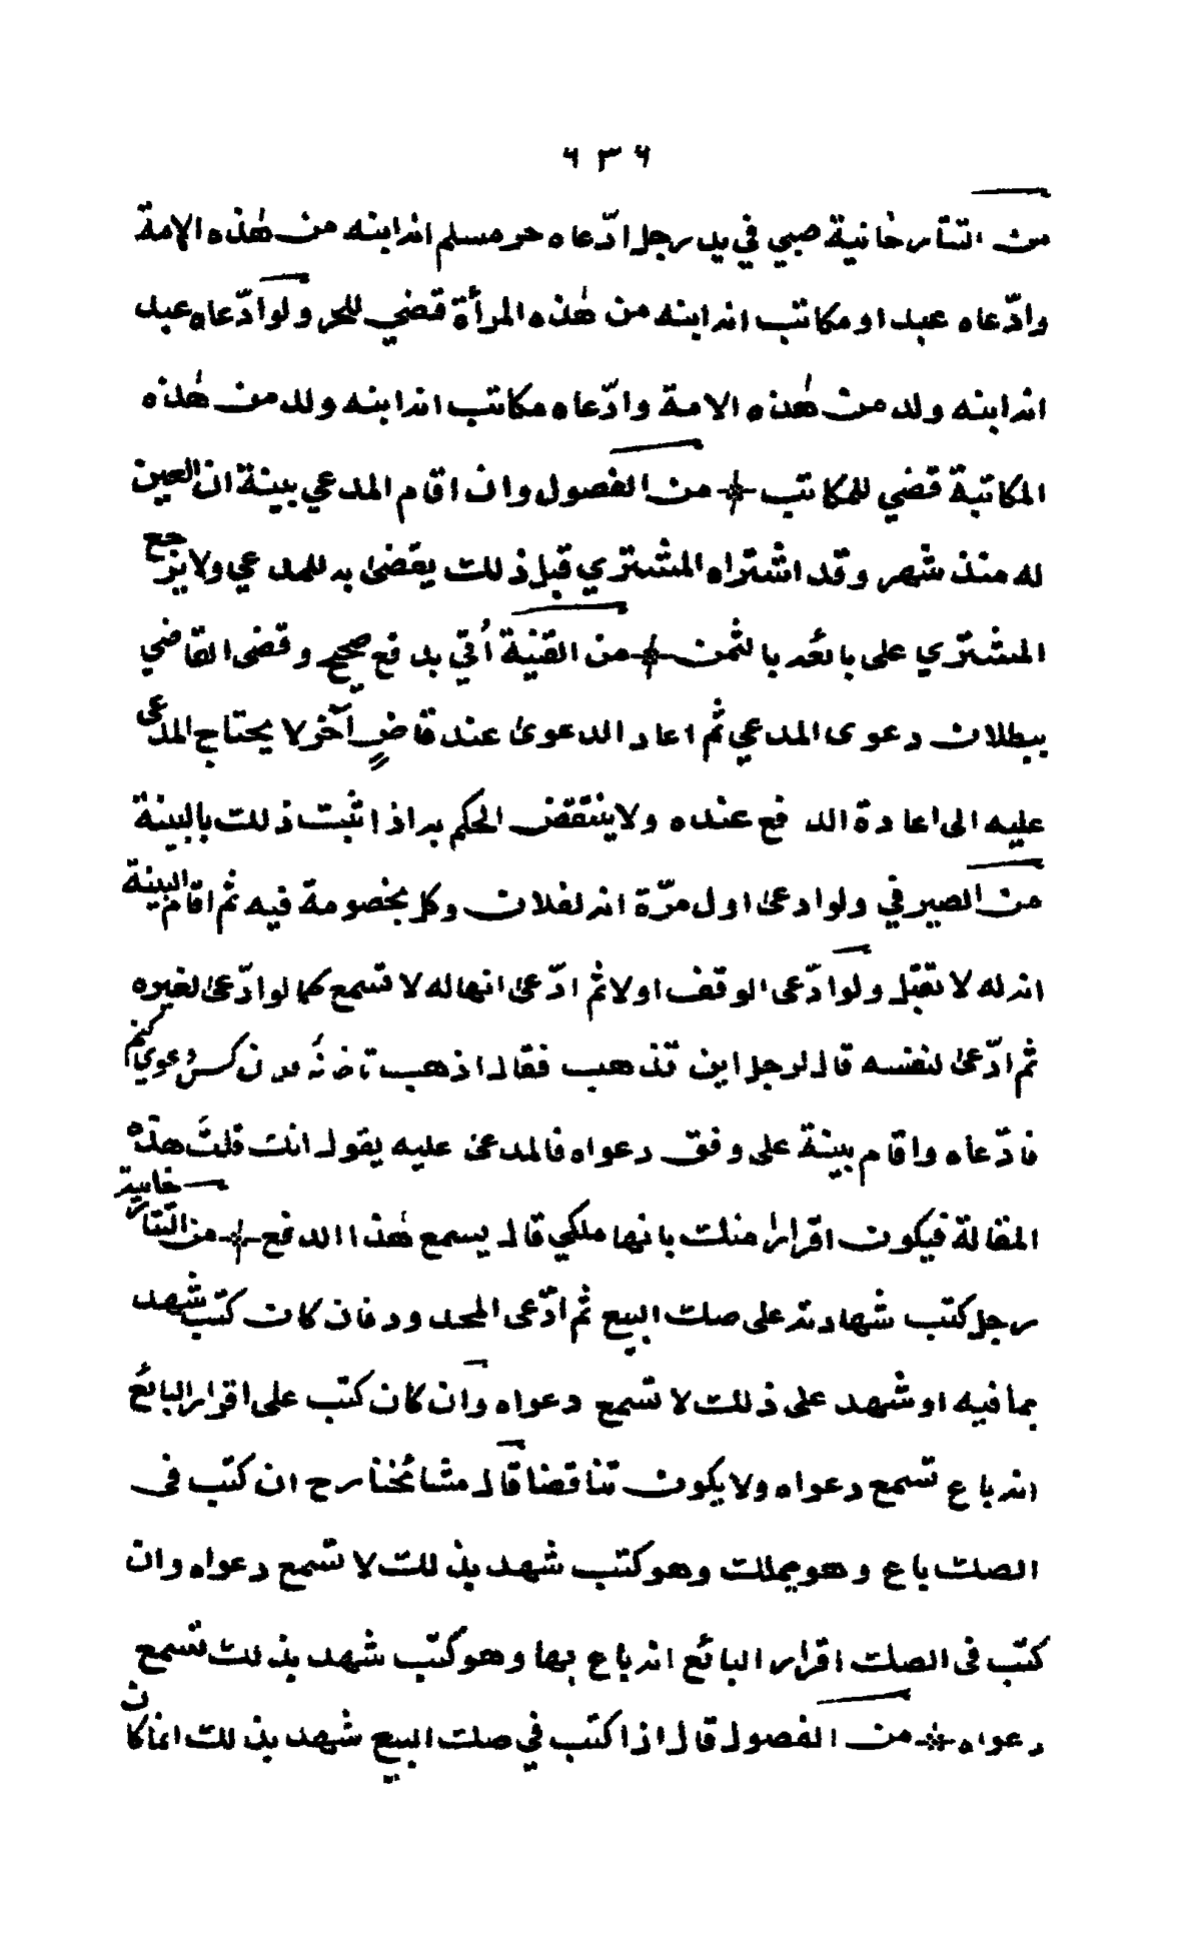 ٦٣٦
من التتارخانية صبي في يد رجل ادّعاه حر مسلم انه ابنه من هٰذه الامة
وادّعاه عبد او مكاتب انه ابنه من هٰذه المرأة قضي للحر ولو ادّعاه عبد
انه ابنه ولد من هٰذه الامة وادّعاه مكاتب انه ابنه ولد من هٰذه
المكاتبة قضي للمكاتب من الفصول وان اقام المدعي بينة ان العين
له منذ شهر وقد اشتراه المشتري قبل ذلك يقضىٰ به للمدعي ولا يرجع
المشتري على بائعه بالثمن من القنية أتي بدفع صحيح وقضى القاضي
ببطلان دعوى المدعي ثم اعاد الدعوىٰ عند قاضٍ آخر لا يحتاج المدعى
عليه الى اعادة الدفع عنده ولا ينتقض الحكم به اذا ثبت ذلك بالبينة
من الصيرفي ولو ادعىٰ اول مرّة انه لفلان وكل بخصومة فيه ثم اقام البينة
انه له لا تقبل ولو ادّعى الوقف اولا ثم ادّعىٰ انها له لا تسمع كما لو ادّعىٰ لغيره
ثم ادّعىٰ لنفسه قال لرجل اين تذهب فقال اذهب تا دعوي كنم
فادّعاه واقام بينة على وفق دعواه فالمدعىٰ عليه يقول انت قلت هذه
المقالة فيكون اقرارا منك بانها ملكي قال يسمع هٰذا الدفع من التتارخانية
رجل كتب شهادته على صك البيع ثم ادّعى المحدود فان كان كتب شهد
بما فيه او شهد على ذلك لا تسمع دعواه وان كان كتب على اقرار البائع
انه باع تسمع دعواه ولا يكون تناقضا قال مشائخنا رح ان كتب فى
الصك باع وهو يملك وهو كتب شهد بذلك لا تسمع دعواه وان
كتب فى الصك اقرار البائع انه باع بها وهو كتب شهد بذلك تسمع
دعواه من الفصول قال اذا كتب في صك البيع شهد بذلك انما كان